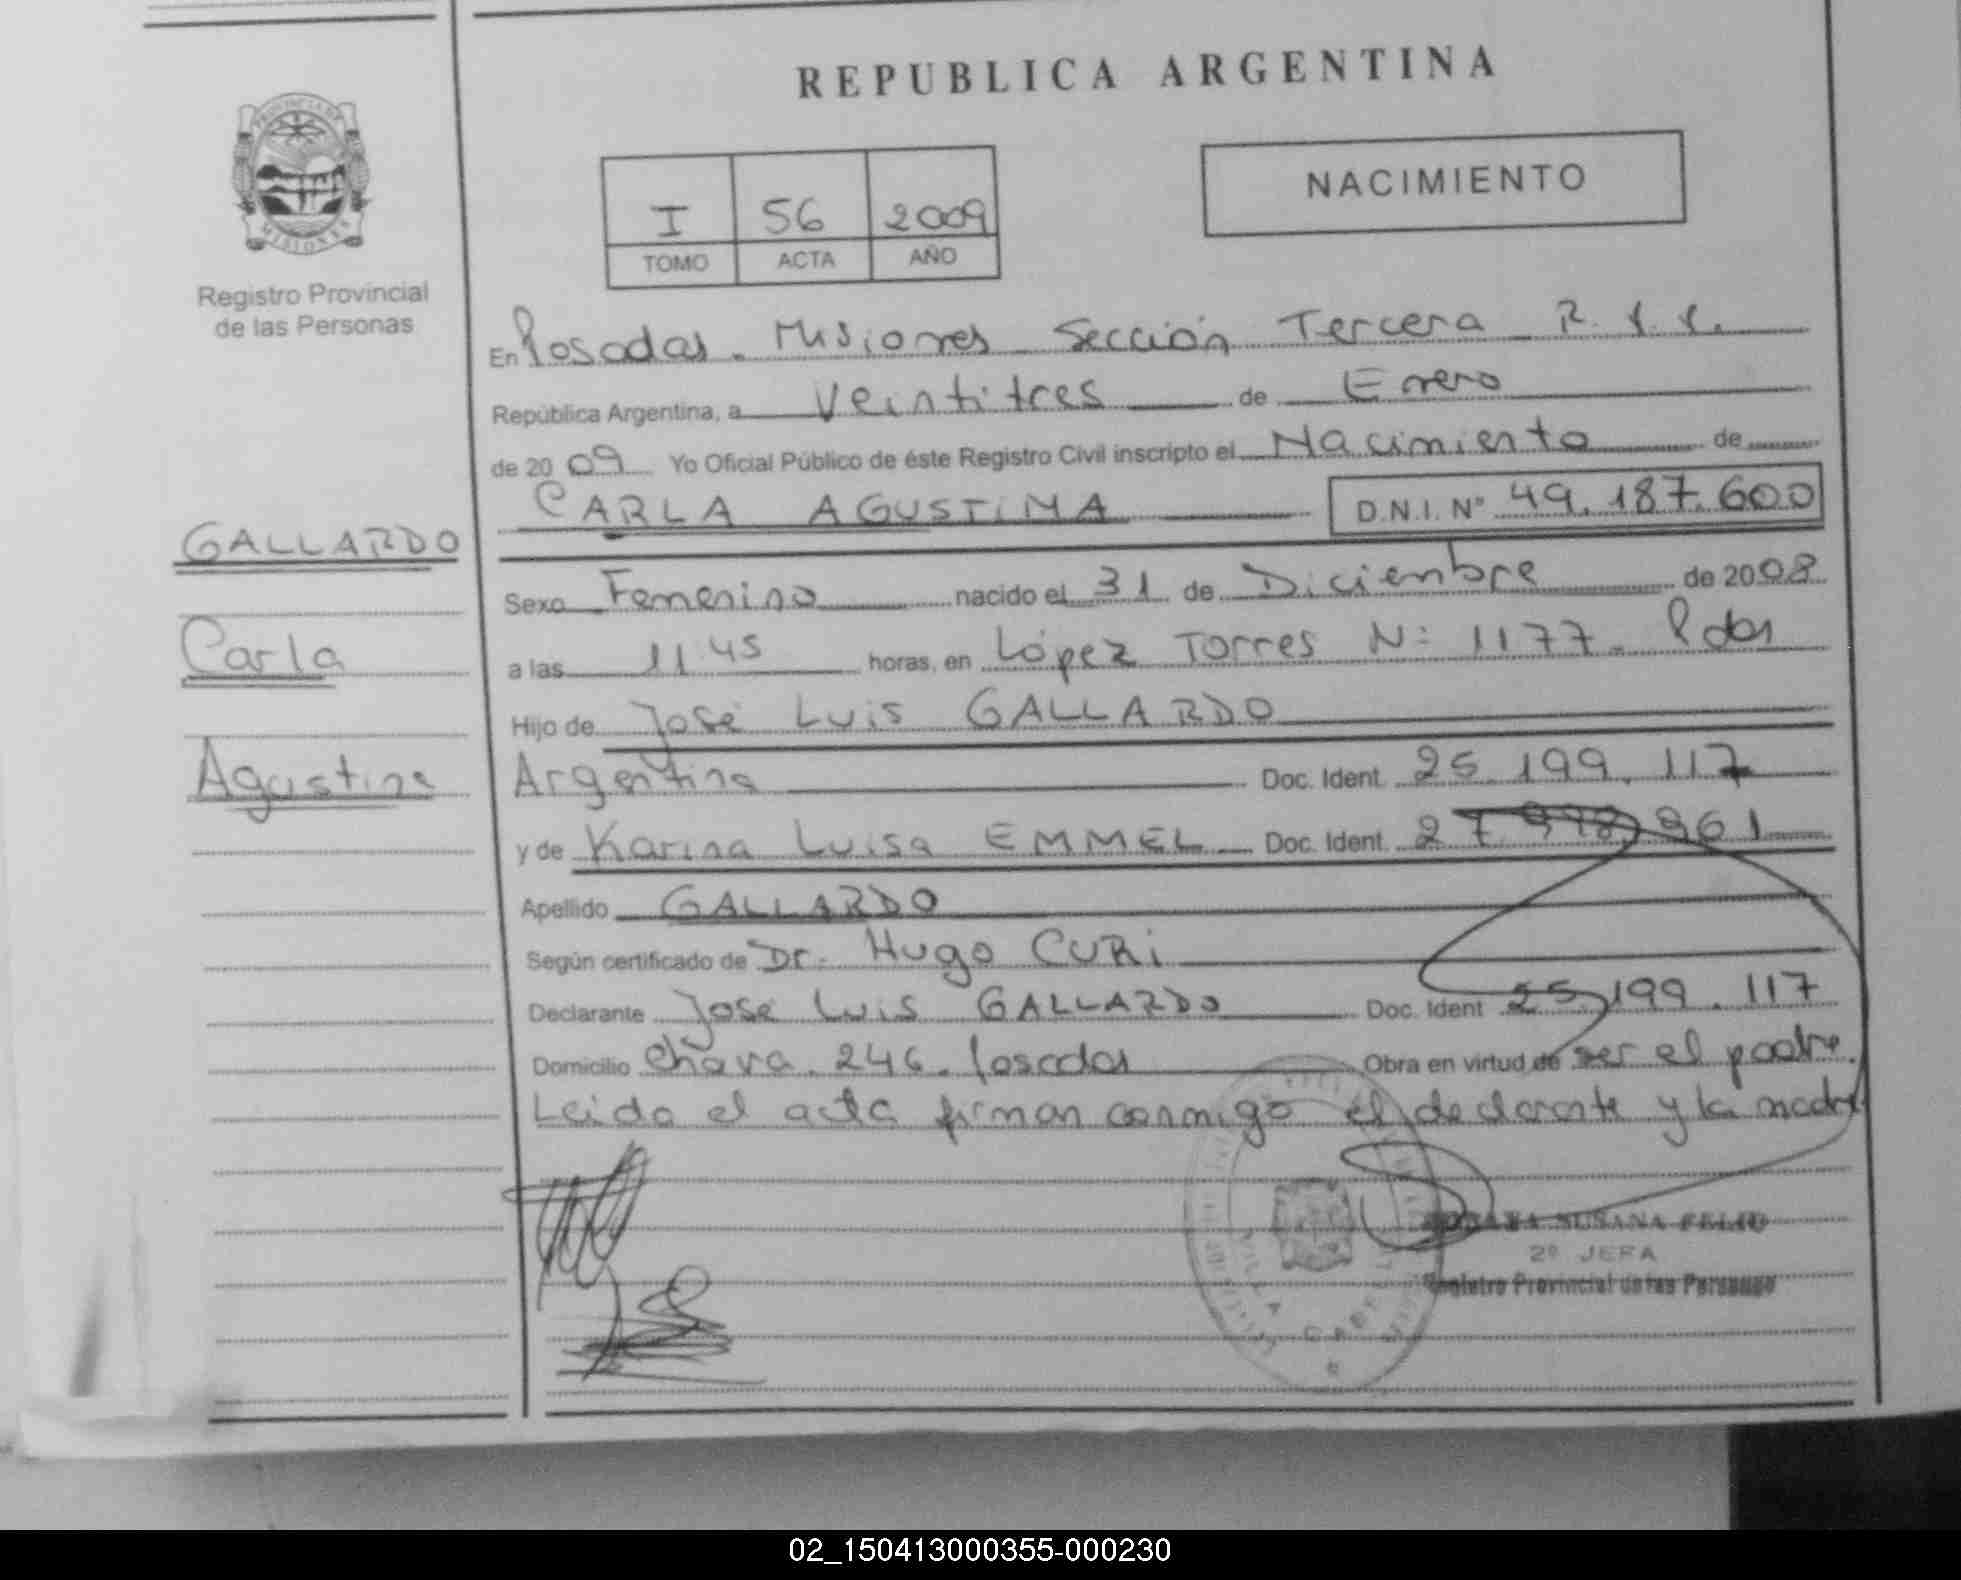 REPUBLICA ARGENTINA
PROVINCIA DE
MISIONES
Registro Provincial
de las Personas
NACIMIENTO
I 56 2009
TOMO ACTA AÑO
En Posadas. Misiones Sección Tercera R.
República Argentina, a Veintitres de Enero
de 2009 Yo Oficial Público de éste Registro Civil inscripto el Nacimiento de
CARLA AGUSTINA D.N.I. Nº 49.187.600
GALLARDO
Carla
Agustina
Sexo Femenino nacido el 31 de Diciembre de 2008
a las 11.45 horas, en López Torres N: 1177. Pdas
Hijo de José Luis GALLARDO
Argentina Doc. Ident. 25.199.117
y de Karina Luisa EMMEL Doc. Ident. 27.998.961
Apellido GALLARDO
Según certificado de Dr. Hugo CURi
Declarante José Luis GALLARDO Doc. Ident 25.199.117
Domicilio 246. Posadas Obra en virtud de ser el padre.
Leida el acta firman conmigo el declarante y la madre
SUSANA
2º JEFA
Registro Provincial de las Personas
VILLA CABELLO
02_150413000355-000230